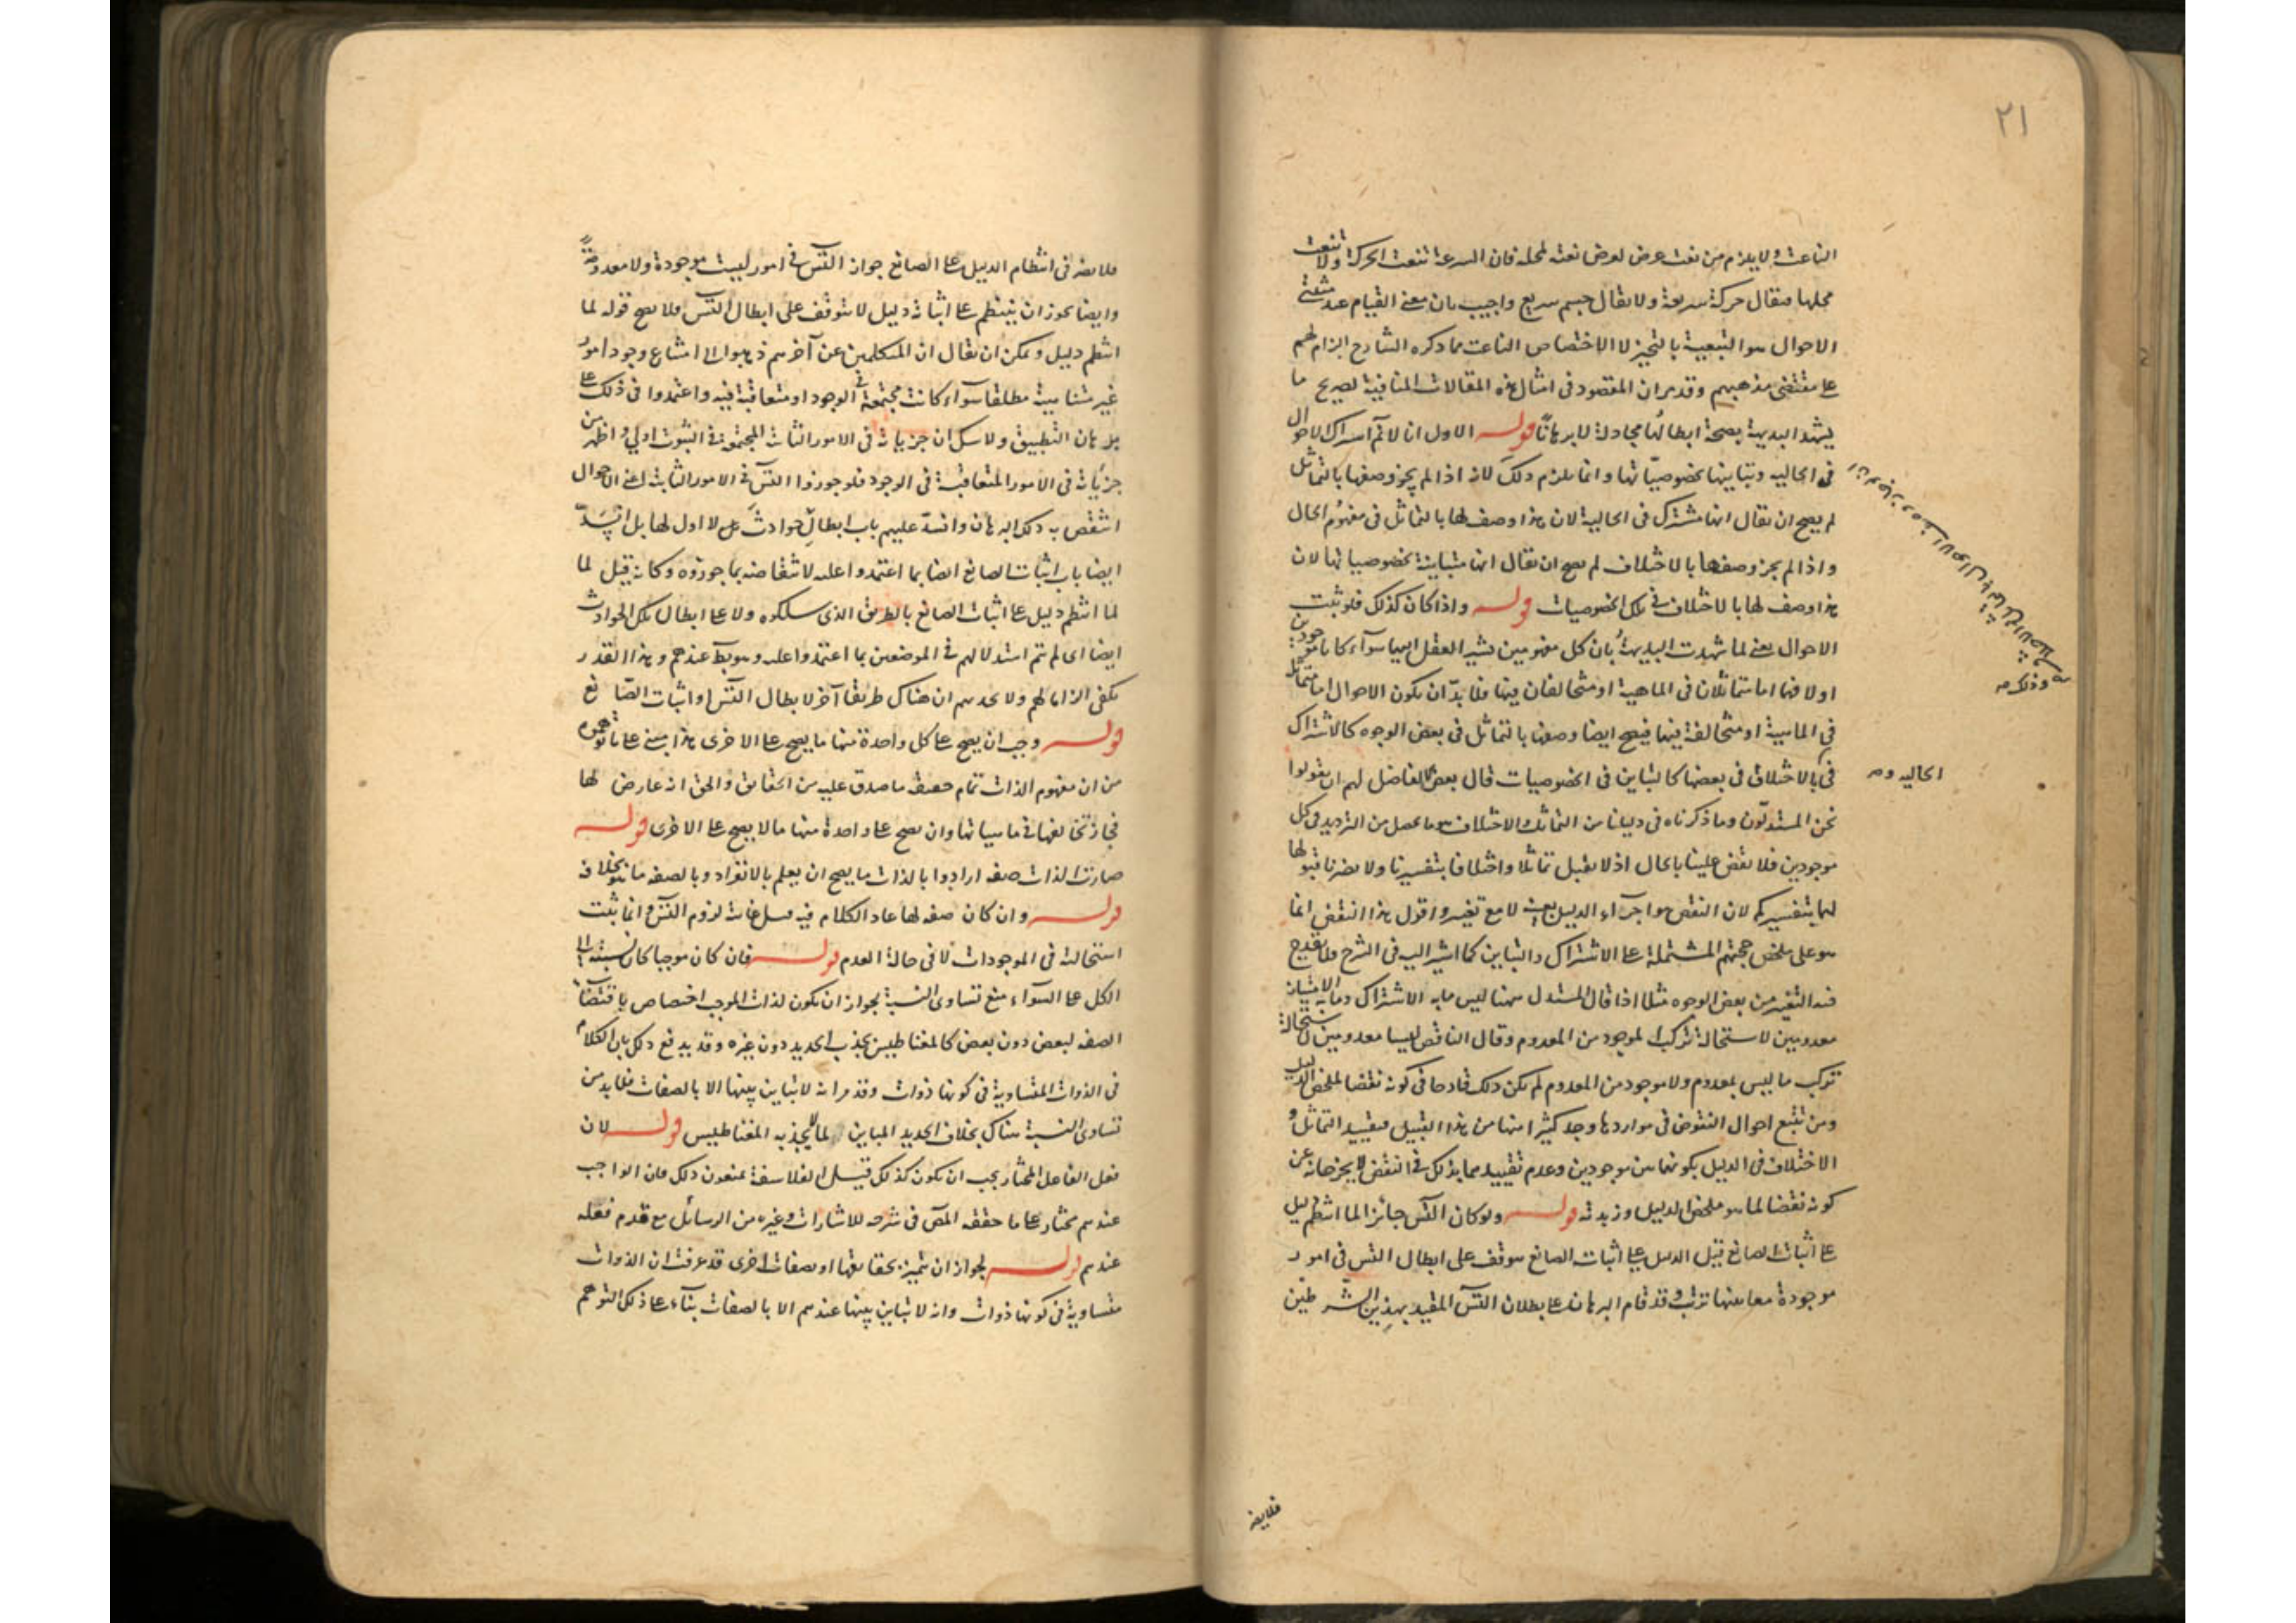 ٢١
الناعت ولا يلزم من نعت عرض لعرض نعته لمحله فان السرعة تنعت الحركة ولا تنعت
محلها فيقال حركة سريعة ولا يقال جسم سريع واجيب بان معنى القيام عند مثبتى
الاحوال هو التبعية بالتحيز لا الاختصاص الناعت فما ذكره الشارح الزام لهم
على مقتضى مذهبهم وقد مر ان المقصود فى امثال هذه المقالات المنافية لصريح ما
يشهد البديهة بصحة ابطالها مجادلة لا برهانا قوله الاول انا لا نم اشتراك الاحوال
فى الحاليه وتباينها بخصوصياتها وانما يلزم ذلك لانه اذا لم يجز وصفها بالتماثل
لم يصح ان يقال انها مشترك فى الحالية لان هذا وصف لها بالتماثل فى مفهوم الحال
واذا لم يجز وصفها بالاختلاف لم يصح ان يقال انها متباينة بخصوصياتها لان
هذا وصف لها بالاختلاف فى تلك الخصوصيات قوله واذا كان كذلك فلو ثبت
الاحوال يعنى لما شهدت البديهة بان كل مفهومين يشير العقل اليهما سوآء كانا موجودين
اولا فهما اما متماثلان فى الماهية او متخالفان فيها فلا بدّ ان يكون الاحوال اما متماثلة
فى الماهية او متخالفة فيها فيصح ايضا وصفها بالتماثل فى بعض الوجوه كالاشتراك
فى بالاختلاف فى بعضها كالتباين فى الخصوصيات قال بعض الافاضل لهم ان يقولوا
الحاليه و صح
نحن المستدلون وما ذكرناه فى دليلنا من التماثل والاختلاف هو ما يحصل من الترديد فى كل
موجودين فلا نقض علينا بالحال اذ لا يقبل تماثلا واختلافا بتفسيرنا ولا يضرنا قبولها
لهما بتفسيركم لان النقض هو اجرآء الدليل بعينه لا مع تغيير واقول هذا النقض انما
هو على ملخص حجتهم المشتملة على الاشتراك والتباين كما اشير اليه فى الشرح ولا يقدح
فيه التغير من بعض الوجوه مثلا اذا قال المستدل ههنا ليس ما به الاشتراك وما به الامتياز
معدومين لاستحالة تركب الموجود من المعدوم وقال الناقض ليسا معدومين لاستحالة
تركب ما ليس بمعدوم ولا موجود من المعدوم لم يكن ذلك قادحا فى كونه نقضا لملخص الدليل
ومن تتبع احوال النقوض فى مواردها وجد كثيرا منها من هذا القبيل فتقييد التماثل و
الاختلاف فى الدليل بكونهما من موجودين وعدم تقييدهما بذلك فى النقض لا يخرجانه عن
كونه نقضا لما هو ملخص الدليل وزبدته قوله ولو كان التس جائزا لما انتظم دليل
على اثبات الصانع قيل الدليل على اثبات الصانع موقف على ابطال التس فى امور
موجودة معا بينها ترتب وقد قام البرهان على بطلان التس المقيد بهذين الشرطين
فلا يضر
فلا يضر فى انتظام الدليل على الصانع جواز التس فى امور ليست موجودة ولا معدومة
وايضا يجوز ان ينتظم على اثباته دليل لا يتوقف على ابطال التس فلا يصح قوله لما
انتظم دليل ويمكن ان يقال ان المتكلمين عن آخرهم ذهبوا الى امتناع وجود امور
غير متناهية مطلقا سوآء كانت مجتمعة فى الوجود او متعاقبة فيه واعتمدوا فى ذلك على
برهان التطبيق ولا شك ان جريانه فى الامور الثابتة المجتمعة فى الثبوت اولى واظهر من
جريانه فى الامور المتعاقبة فى الوجود فلو جوزوا التس فى الامور الثابتة اعنى الاحوال
انتقض به ذلك البرهان وانسدّ عليهم باب ابطال حوادث لا اول لها بل انسدّ
ايضا باب اثبات الصانع ايضا بما اعتمدوا عليه لانتقاضه بما جوزوه وكانه قيل لما
لما انتظم دليل على اثبات الصانع بالطريق الذى سلكوه ولا على ابطال تلك الحوادث
ايضا اى لم يتم استدلالهم فى الموضعين بما اعتمدوا عليه وهو بط عندهم وهذا القدر
يكفى الزاما لهم ولا يجديهم ان هناك طريقا آخر لابطال التس او اثبات الصانع
قوله وجب ان يصح على كل واحدة منها ما يصح على الاخرى هذا مبنى على ما توهموه
من ان مفهوم الذات تمام حقيقة ما صدق عليه من الحقايق والحق انه عارض لها
فجاز تخالفها فى ماهياتها وان يصح على واحدة منها ما لا يصح على الاخرى قوله
صارت الذات صفه ارادوا بالذات ما يصح ان يعلم بالانفراد وبالصفه ما هو بخلافه
قوله وان كان صفه لها عاد الكلام فيه لزوم التس وانما يثبت
استحالته فى الموجودات لا فى حالة العدم قوله فان كان موجبا كان نسبته الى
الكل على السوآء منع تساوى النسبة لجواز ان يكون لذات الموجب اختصاص باقتضآء
الصفه لبعض دون بعض كالمغناطيس يجذب الحديد دون غيره وقد يدفع ذلك بان الكلام
فى الذوات المتساوية فى كونها ذوات وقد مر انه لا تباين بينها الا بالصفات فلا بد من
تساوى النسبة هناك بخلاف الحديد المباين لما لا يجذبه المغناطيس قوله لان
فعل الفاعل المختار يجب ان يكون كذلك قيل الفلاسفة يمنعون ذلك فان الواجب
عندهم مختار على ما حققه المص فى شرحه للاشارات وغيره من الرسائل مع قدم فعله
عندهم قوله لجواز ان يتميز بحقايقها او بصفات اخرى قد عرفت ان الذوات
متساوية فى كونها ذوات وانه لا تباين بينها عندهم الا بالصفات بنآء على ذلك التوهم